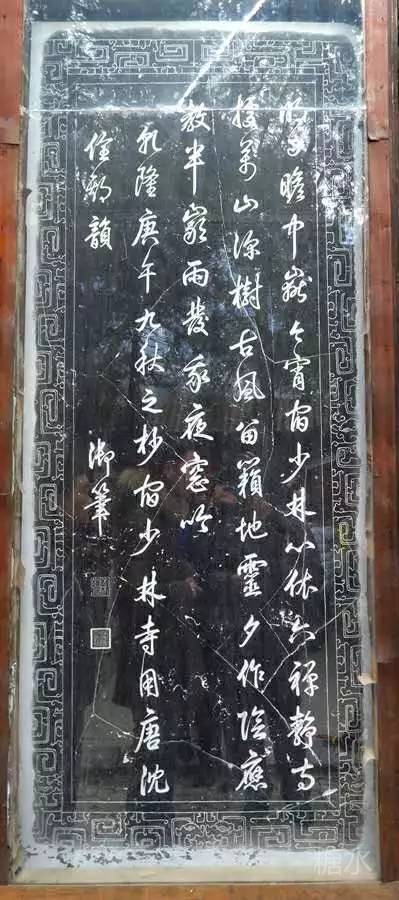 明日瞻中嶽今宵宿少林心依六禪靜寺
據萬山深樹古風留籟地靈夕作陰應
教半巖雨發我夜窓吟
乾隆庚午九秋之杪宿少林寺用唐沈
佺期韻
御筆
糖水